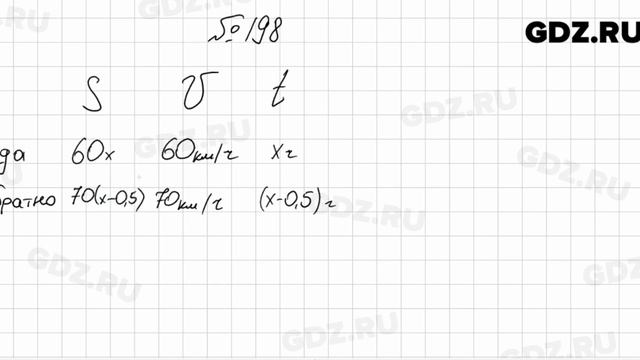 № 198
GDZ.RU
S V t
да 60x 60км/ч xч
братно 70(x-0,5) 70км/ч (x-0,5)ч
GDZ.RU
GDZ.RU
GDZ.RU
GDZ.RU
GDZ.RU
GDZ.RU
GDZ.RU